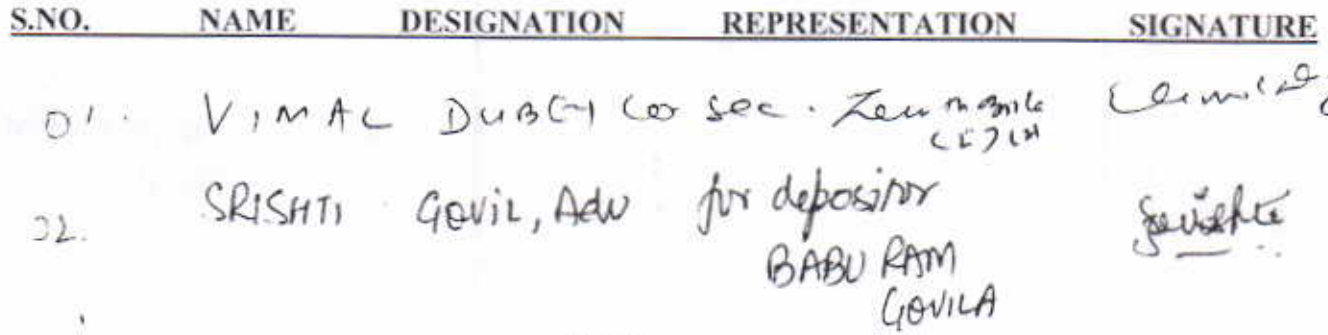 S.NO. NAME DESIGNATION REPRESENTATION SIGNATURE
01. VIMAL DUBEY Co sec.
02. SRISHTI GOVIL, Adv for depositor
BABU RAM
GOVILA